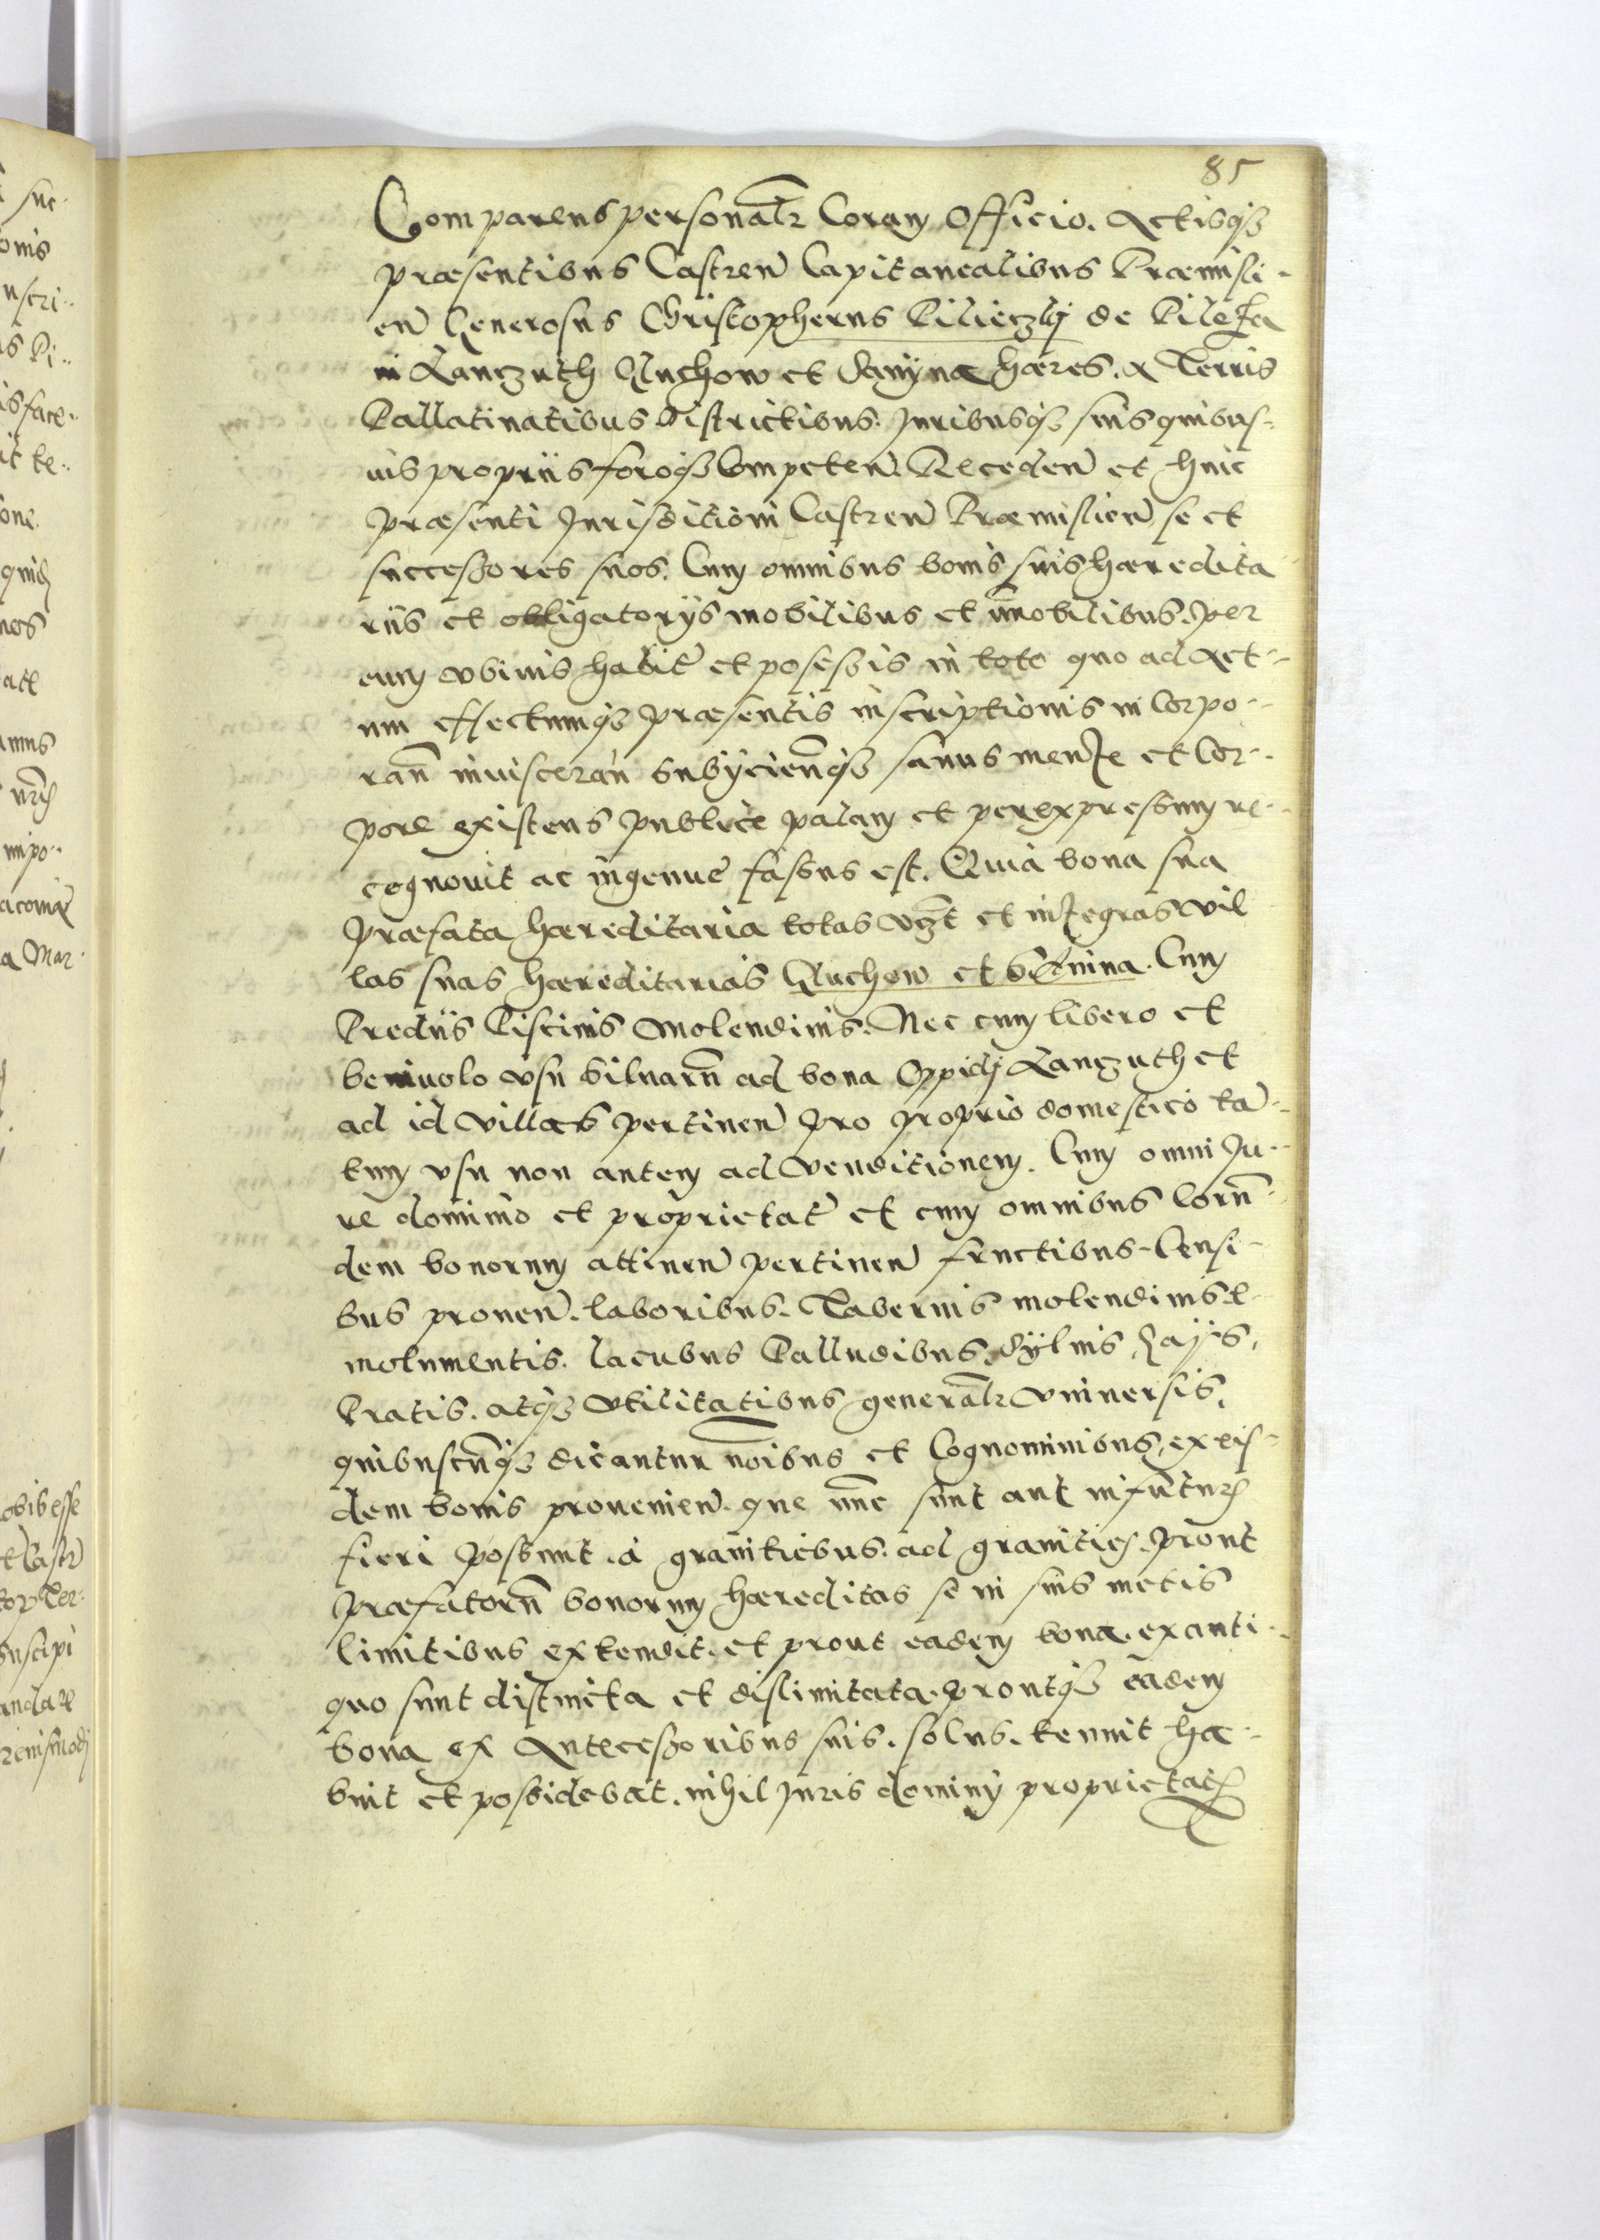 85
Comparens personalr Coram Officio. Actibusq3
præsentibus Castren Capitanealibus Præmisli-
en Generosus Christopherus Pilieczkj de Pilcza
in Lanczuth Kuchow et Sanyna hæres. A Terris
Pallatinatibus Districtibus. Juribusq3 suis quibus-
uis propriis foroq3 Competen. Receden et huic
præsenti Jurisditioni Castren Præmislien se et
successores suos. Cum omnibus bonis suis hæredita
riis et obligatoriis mobilibus et immobilibus. per
eum vbiuis habit et possessis in toto quo ad Act-
um effectumq3 præsentis inscriptionis in Corpo-
ran inuisceran subyicienq3 sanus mente et Cor-
pore existens publice palam et perexpressum re-
cognouit ac ingenue fassus est. Quia bona sua
præfata hæreditaria totas vzt et integras vil
las suas hæreditarias Kuchow et Sonina. Cum
Prediis Piscinis Molendinis. Nec cum libero et
beniuolo vsu siluarn ad bona Oppidj Lanczuth et
ad id villas pertinen pro proprio domestico ta-
tum vsu non autem ad venditionem. Cum omni Ju-
re dominio et proprietat et cum omnibus Corn-
dem bonorum attinen pertinen fructibus Censi-
bus prouen. laboribus. Tabernis molendinis e-
molumentis. lacubus Palludibus. Syluis, Gayis,
Pratis. atq3 vtilitatibus generalr vniuersis.
quibuscunq3 dicantur noibus et Cognominibus, ex eis-
dem bonis prouenien. que nunc sunt aut in futur
fieri possunt. à granitiebus. ad granities. prout
præfatorn bonorum hæreditas se in suis metis
limitibus extendit. et prout eadem bona. ex anti-
quo sunt distincta et dislimitata. proutq3 eadem
bona ex Antecessoribus suis. solus. tenuit ha-
buit et possidebat. nihil Juris dominy proprietatis